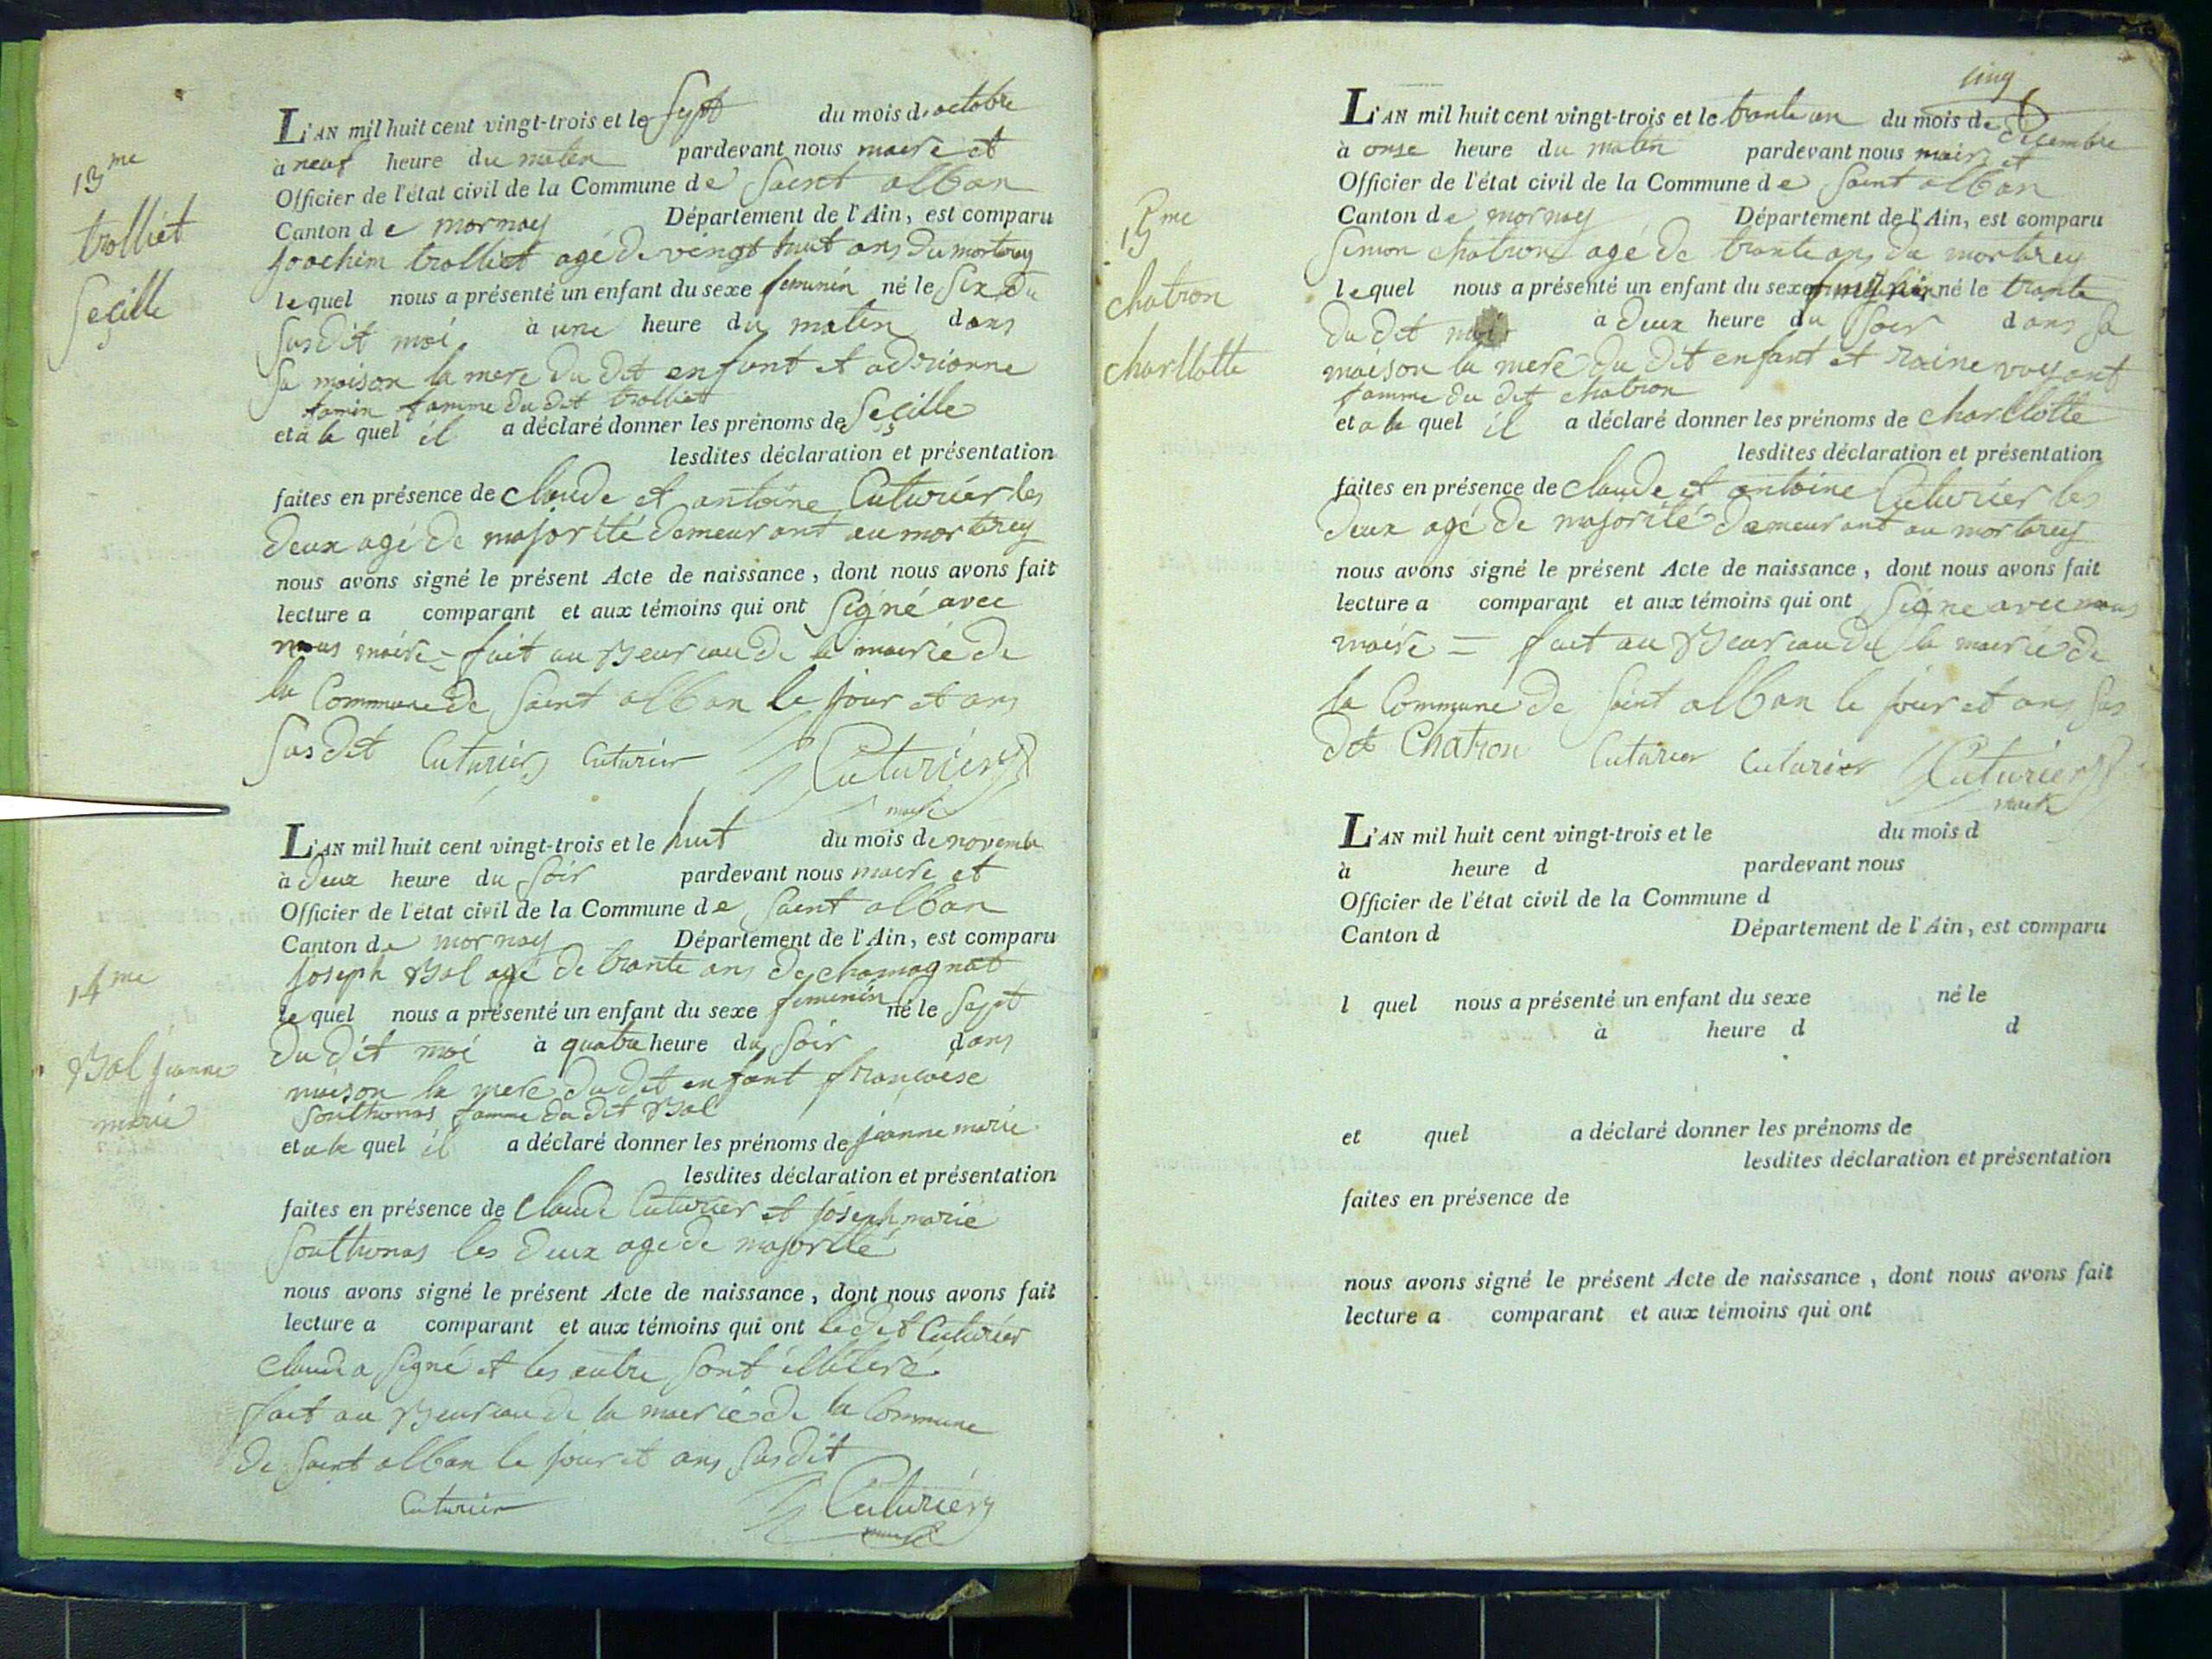 13me
trolliet
Seçille
L'AN mil huit cent vingt-trois et le Sept du mois d'octobre
à neuf heure du maten pardevant nous maire et
Officier de l'état civil de la Commune de Saint alban
Canton de mornay Département de l'Ain, est comparu
Joachim trolliet agé de vingt huit ans du mortarey
lequel nous a présenté un enfant du sexe femunin né le Six du
Susdit moi à une heure du maten dans
Sa maison la mere du dit enfant et adrionne
famme du dit trolliet
et a le quel il a déclaré donner les prénoms de Seçille
lesdites déclaration et présentation
faites en présence de claude et antoine Cuturier les
deux agé de majorité demeurant au mortarey
nous avons signé le présent Acte de naissance, dont nous avons fait
lecture a comparant et aux témoins qui ont Signé avec
nous maire = fait au Beureau de la mairie de
la Commune de Saint alban le jour et ans
Susdit Cuturier Cuturier Cuturier
maire
14me
Bal jeanne
marie
L'AN mil huit cent vingt-trois et le huit du mois de novembre
à deux heure du Soir pardevant nous maire et
Officier de l'état civil de la Commune de Saint alban
Canton de mornay Département de l'Ain, est comparu
joseph Bal agé de trante ans de chamagnat
lequel nous a présenté un enfant du sexe femenin né le Sept
du dit moi à quatre heure du Soir dans
maison la mere du dit enfant françoise
Southonas famme du dit Bal
et a le quel il a déclaré donner les prénoms de jeanne marie
lesdites déclaration et présentation
faites en présence de Claude Cuturier et joseph marie
Southonas les deux age de majorité
nous avons signé le présent Acte de naissance, dont nous avons fait
lecture a comparant et aux témoins qui ont le dit Cuturier
claude a signé et les autre Sont illitere
fait au Beureau de la mairie de la Commune
de Saint alban le jour et ans Susdit
Cuturier Cuturier
maire
cinq
15me
chatron
charllotte
L'AN mil huit cent vingt-trois et le trante un du mois de decembre
à onse heure du matin pardevant nous maire et
Officier de l'état civil de la Commune de Saint alban
Canton de mornay Département de l'Ain, est comparu
Simon chatron agé de trante ans du mortarey
lequel nous a présenté un enfant du sexe né le trante
du dit moi à deux heure du Soir dans Sa
maison la mere du dit enfant et raine voyant
famme du dit chatron
et a le quel il a déclaré donner les prénoms de charllotte
lesdites déclaration et présentation
faites en présence de claude et antoine Cuturier les
deux agé de majorité demeurant au mortarey
nous avons signé le présent Acte de naissance, dont nous avons fait
lecture a comparant et aux témoins qui ont Signe avec nous
maire = fait au Beureau de la mairie de
la Commune de Saint alban le jour et ans Sus
dit Chatron Cuturier Cuturier Cuturier
maire
L'AN mil huit cent vingt-trois et le du mois d
à heure d pardevant nous
Officier de l'état civil de la Commune d
Canton d Département de l'Ain, est comparu
l quel nous a présenté un enfant du sexe né le
à heure d d
et quel a déclaré donner les prénoms de
lesdites déclaration et présentation
faites en présence de
nous avons signé le présent Acte de naissance, dont nous avons fait
lecture a comparant et aux témoins qui ont